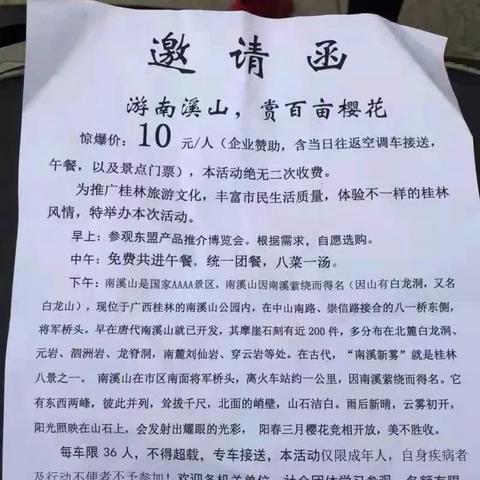 邀请函
游南溪山，赏百亩樱花
惊爆价：10 元/人（企业赞助，含当日往返空调车接送，
午餐，以及景点门票），本活动绝无二次收费。
为推广桂林旅游文化，丰富市民生活质量，体验不一样的桂林
风情，特举办本次活动。
早上：参观东盟产品推介博览会。根据需求，自愿选购。
中午：免费共进午餐，统一团餐，八菜一汤。
下午：南溪山是国家AAAA景区，南溪山因南溪萦绕而得名（因山有白龙洞，又名
白龙山），现位于广西桂林的南溪山公园内，在中山南路、崇信路接合的八一桥东侧，
将军桥头。早在唐代南溪山就已开发，其摩崖石刻有近 200 件，多分布在北麓白龙洞、
元岩、泗洲岩、龙脊洞，南麓刘仙岩、穿云岩等处。在古代，“南溪新雾”就是桂林
八景之一。 南溪山在市区南面将军桥头，离火车站约一公里，因南溪萦绕而得名。它
有东西两峰，彼此并列，耸拔千尺，北面的峭壁，山石洁白。雨后新晴，云雾初开，
阳光照映在山石上，会发射出耀眼的光彩， 阳春三月樱花竞相开放，美不胜收。
每车限 36 人，不得超载，专车接送，本活动仅限成年人，自身疾病者
及行动不便者不予参加！欢迎各机关单位、社会团体学习参观，名额有限